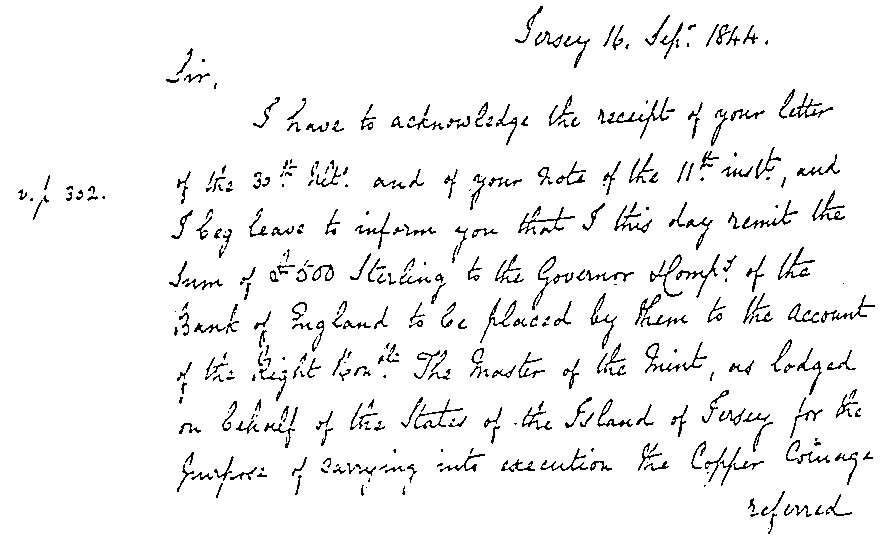 Jersey 16. Sepr. 1844.
Sir,
I have to acknowledge the receipt of your letter
of the 30th. Ulto. and of your note of the 11th. instt., and
v. p 302.
I beg leave to inform you that I this day remit the
Sum of £500 Sterling to the Governor & Compy. of the
Bank of England to be placed by them to the account
of the Right Honble. The Master of the Mint, as lodged
on behalf of the States of the Island of Jersey for the
purpose of carrying into execution the Copper Coinage
referred